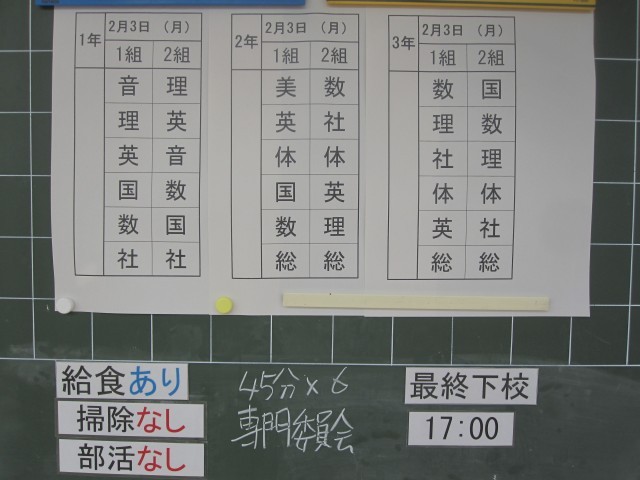 1年 2月3日 （月）
1組 2組
音 理
理 英
英 音
国 数
数 国
社 社
2年 2月3日 （月）
1組 2組
美 数
英 社
体 体
国 英
数 理
総 総
3年 2月3日 （月）
1組 2組
数 国
理 数
社 理
体 体
英 社
総 総
給食あり
掃除なし
部活なし
45分×6
専門委員会
最終下校
17:00